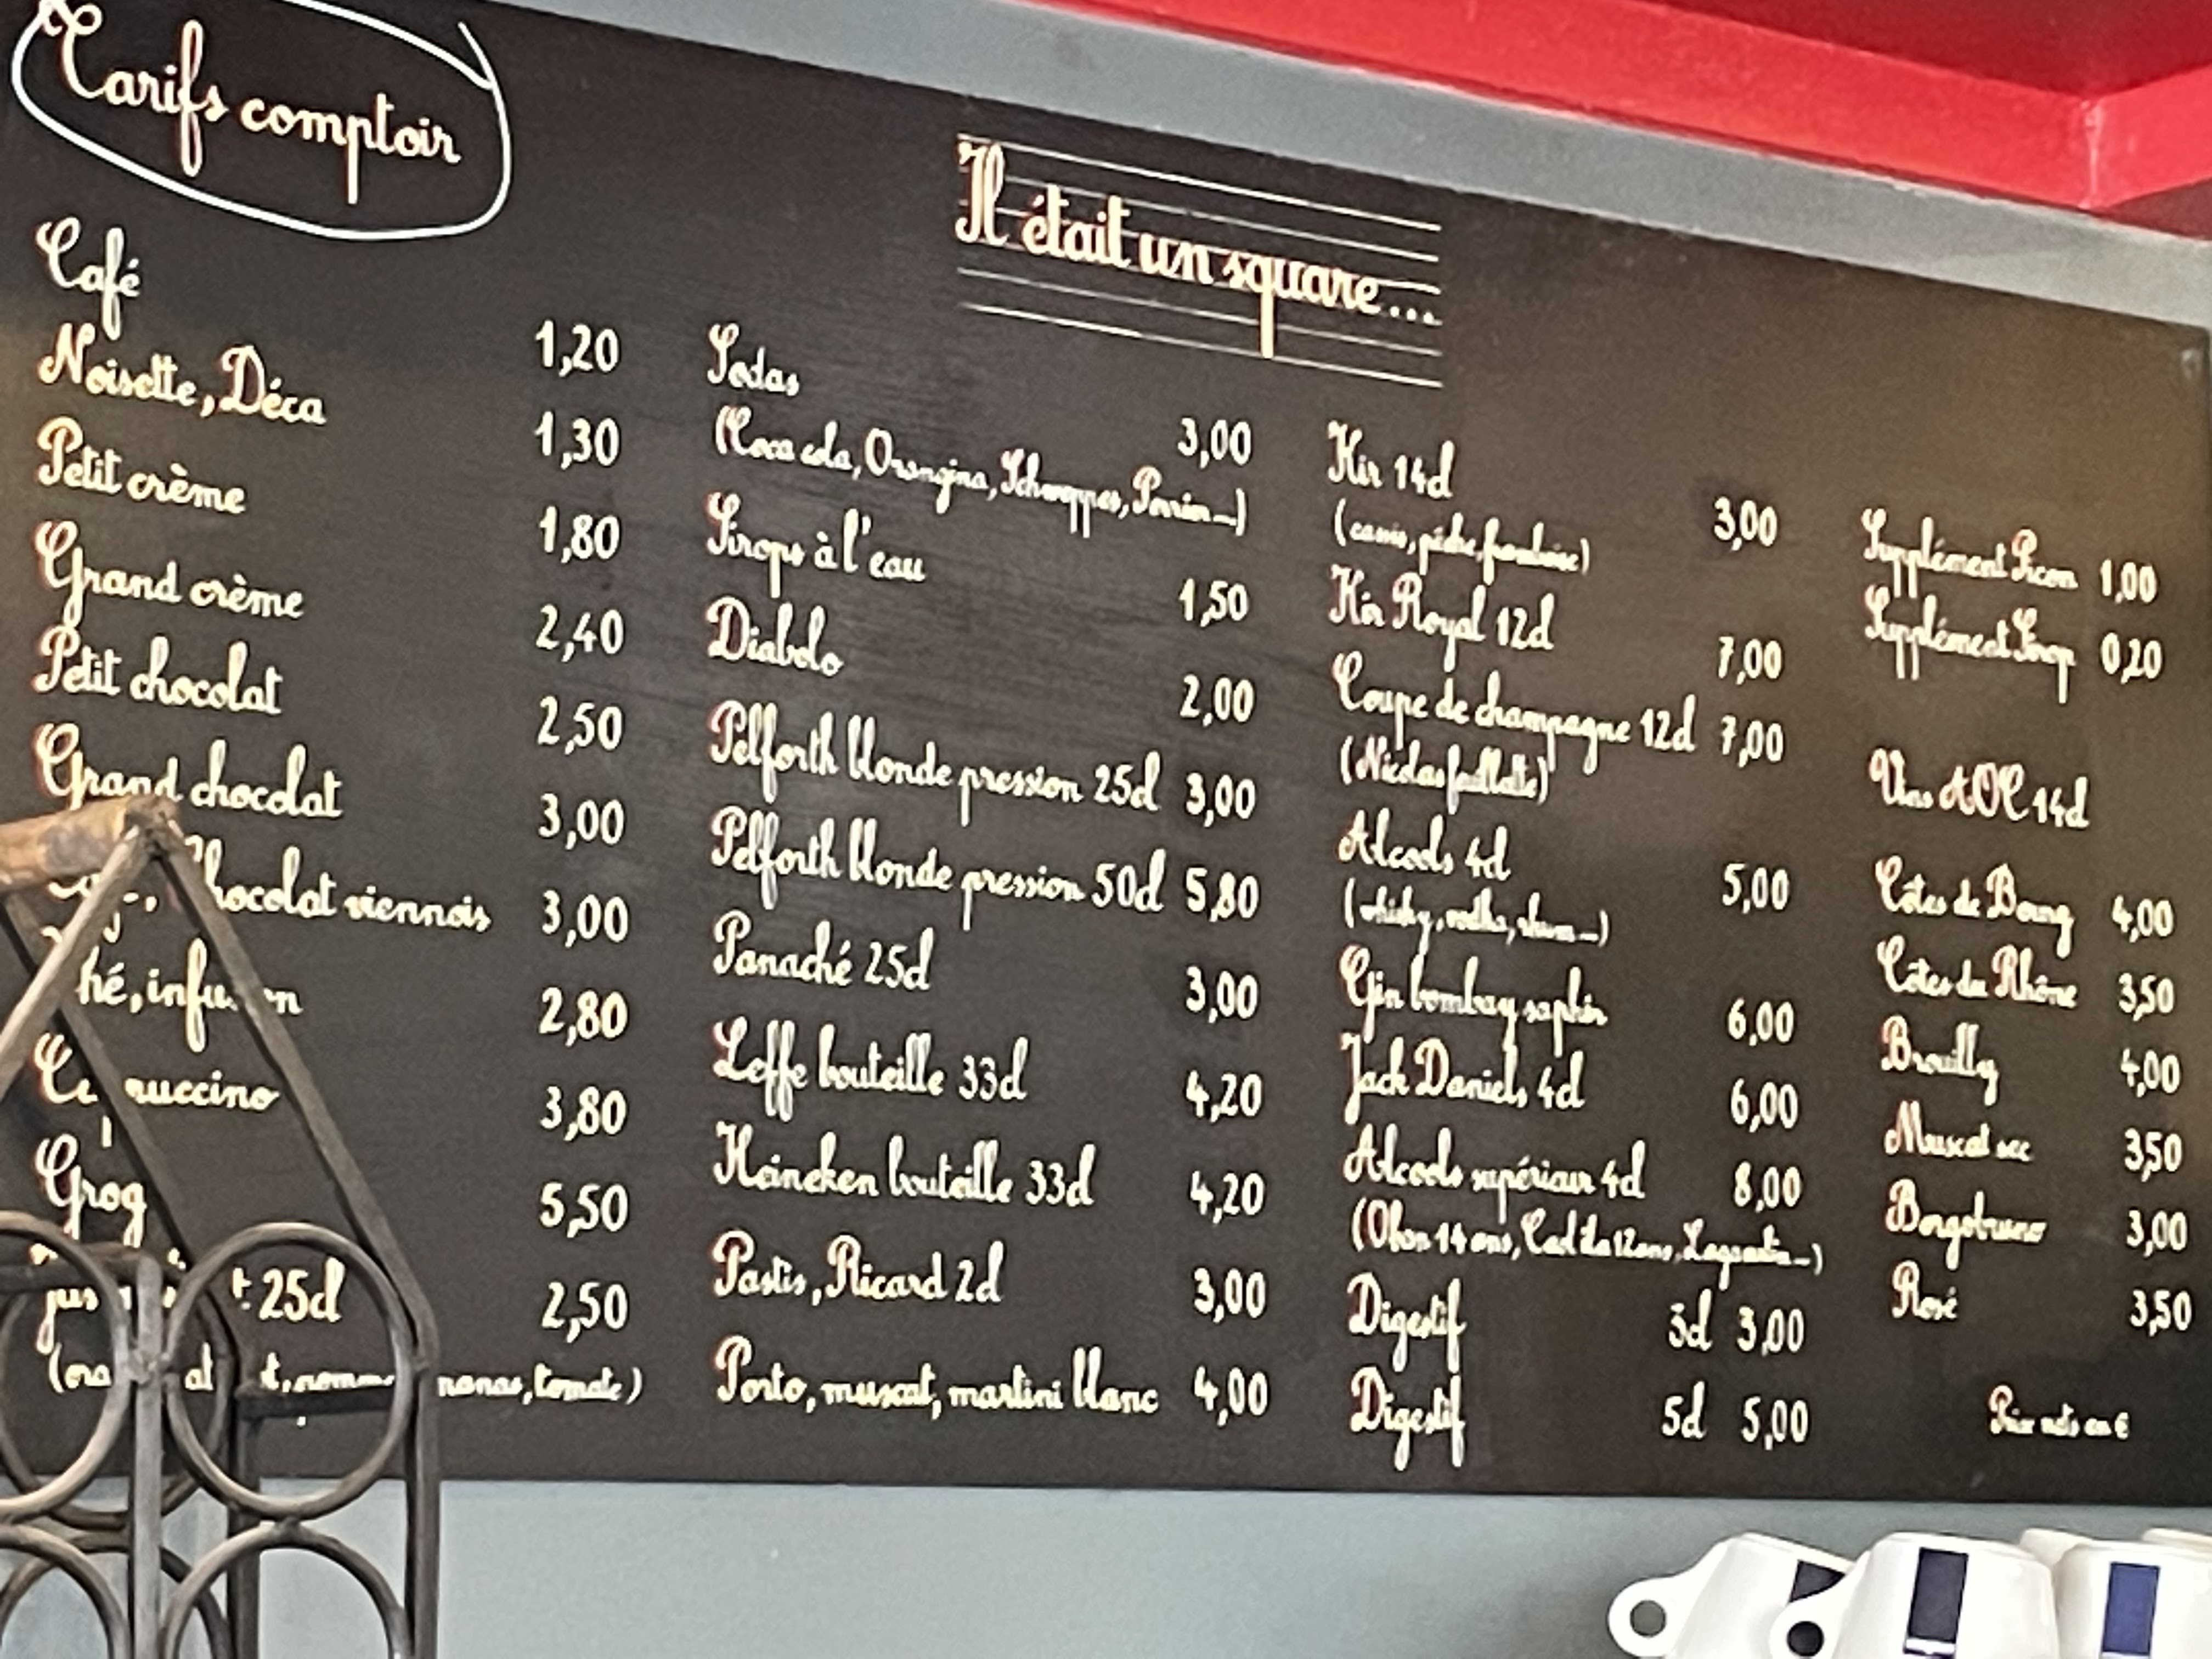 Tarifs comptoir
Il était un square...
Café 1,20
Noisette, Déca 1,30
Petit crème 1,80
Grand crème 2,40
Petit chocolat 2,50
Grand chocolat 3,00
Chocolat viennois 3,00
Thé, infusion 2,80
Cappuccino 3,80
Grog 5,50
jus 25cl 2,50
tomate)
Sodas 3,00
(Coca cola, Orangina, Schweppes, Perrier...)
Sirops à l'eau 1,50
Diabolo 2,00
Pelforth blonde pression 25cl 3,00
Pelforth blonde pression 50cl 5,80
Panaché 25cl 3,00
Leffe bouteille 33cl 4,20
Heineken bouteille 33cl 4,20
Pastis, Ricard 2cl 3,00
Porto, muscat, martini blanc 4,00
Kir 14cl 3,00
(cassis, pêche, framboise)
Kir Royal 12cl 7,00
Coupe de champagne 12cl 7,00
(Nicolas feuillatte)
Alcools 4cl 5,00
(whisky, vodka, rhum...)
Gin bombay saphir 6,00
Jack Daniels 4cl 6,00
Alcools supérieur 4cl 8,00
(Oban 14 ans, Caol ila 12 ans, Lagavulin...)
Digestif 3cl 3,00
Digestif 5cl 5,00
Supplément Picon 1,00
Supplément Sirop 0,20
Vins AOC 14cl
Côtes de Bourg 4,00
Côtes du Rhône 3,50
Brouilly 4,00
Muscat sec 3,50
Borgobruno 3,00
Rosé 3,50
Prix nets en €